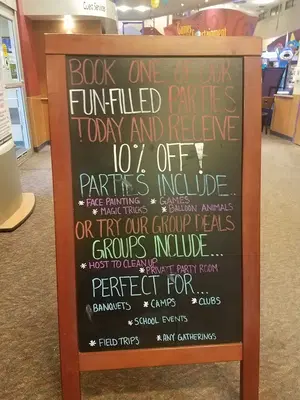 BOOK ONE OF OUR
FUN-FILLED PARTIES
TODAY AND RECEIVE
10% OFF!
PARTIES INCLUDE..
* FACE PAINTING * GAMES
* MAGIC TRICKS * BALLOON ANIMALS
OR TRY OUR GROUP DEALS
GROUPS INCLUDE...
* HOST TO CLEAN UP
* PRIVATE PARTY ROOM
PERFECT FOR...
BANQUETS * CAMPS * CLUBS
* SCHOOL EVENTS
* FIELD TRIPS * ANY GATHERINGS